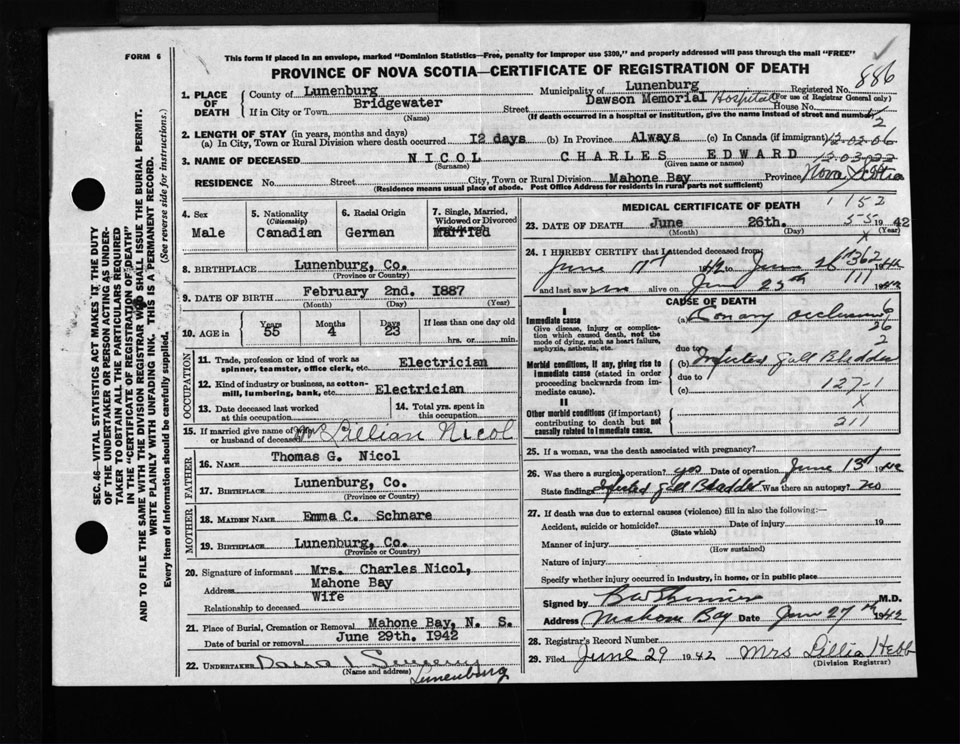 FORM 6
This form if placed in an envelope, marked "Dominion Statistics—Free, penalty for improper use $300," and properly addressed will pass through the mail "FREE"
PROVINCE OF NOVA SCOTIA—CERTIFICATE OF REGISTRATION OF DEATH
886
SEC. 46—VITAL STATISTICS ACT MAKES IT THE DUTY
OF THE UNDERTAKER OR PERSON ACTING AS UNDER-
TAKER TO OBTAIN ALL THE PARTICULARS REQUIRED
IN THE "CERTIFICATE OF REGISTRATION OF DEATH"
AND TO FILE THE SAME WITH THE DIVISION REGISTRAR WHO SHALL ISSUE THE BURIAL PERMIT.
WRITE PLAINLY WITH UNFADING INK. THIS IS A PERMANENT RECORD.
Every item of information should be carefully supplied. (See reverse side for instructions.)
1. PLACE OF DEATH
County of Lunenburg Municipality of Lunenburg Registered No.
(For use of Registrar General only)
If in City or Town Bridgewater Street Dawson Memorial Hospital House No.
(Name) (If death occurred in a hospital or institution, give the name instead of street and number)
2. LENGTH OF STAY (in years, months and days)
(a) In City, Town or Rural Division where death occurred 12 days (b) In Province Always (c) In Canada (if immigrant)
12.02.06
3. NAME OF DECEASED NICOL CHARLES EDWARD
(Surname) (Given name or names)
RESIDENCE No. Street City, Town or Rural Division Mahone Bay Province Nova Scotia
(Residence means usual place of abode. Post Office Address for residents in rural parts not sufficient)
4. Sex Male
5. Nationality (Citizenship) Canadian
6. Racial Origin German
7. Single, Married, Widowed or Divorced Married
8. BIRTHPLACE Lunenburg, Co.
(Province or Country)
9. DATE OF BIRTH February 2nd. 1887
(Month) (Day) (Year)
10. AGE in Years 55 Months 4 Days 23 If less than one day old
hrs. or min.
OCCUPATION
11. Trade, profession or kind of work as spinner, teamster, office clerk, etc. Electrician
12. Kind of industry or business, as cotton-mill, lumbering, bank, etc. Electrician
13. Date deceased last worked at this occupation
14. Total yrs. spent in this occupation
15. If married give name of wife or husband of deceased Lillian Nicol
FATHER
16. NAME Thomas G. Nicol
17. BIRTHPLACE Lunenburg, Co.
(Province or Country)
MOTHER
18. MAIDEN NAME Emma C. Schnare
19. BIRTHPLACE Lunenburg, Co.
(Province or Country)
20. Signature of informant Mrs. Charles Nicol,
Address Mahone Bay
Relationship to deceased Wife
21. Place of Burial, Cremation or Removal Mahone Bay, N. S.
Date of burial or removal June 29th. 1942
22. UNDERTAKER
(Name and address) Lunenburg
MEDICAL CERTIFICATE OF DEATH
1152
23. DATE OF DEATH June 26th. 1942
(Month) (Day) (Year)
24. I HEREBY CERTIFY that I attended deceased from
June 17 1942 to June 26 1942
and last saw him alive on June 25th 1942
CAUSE OF DEATH
I
Immediate cause
Give disease, injury or complication which caused death, not the mode of dying, such as heart failure, asphyxia, asthenia, etc.
(a) Conary occlusion
26
due to
Morbid conditions, if any, giving rise to immediate cause (stated in order proceeding backwards from immediate cause).
(b) Infected Gall Bladder
due to
(c) 127-1
x
II
Other morbid conditions (if important) contributing to death but not causally related to immediate cause.
211
25. If a woman, was the death associated with pregnancy?
26. Was there a surgical operation? yes Date of operation June 13th 1942
State findings Infected Gall Bladder Was there an autopsy? No
27. If death was due to external causes (violence) fill in also the following:—
Accident, suicide or homicide? Date of injury 19
(State which)
Manner of injury
(How sustained)
Nature of injury
Specify whether injury occurred in industry, in home, or in public place
Signed by M.D.
Address Mahone Bay Date June 27th 1942
28. Registrar's Record Number
29. Filed June 29 1942 Mrs Lillia Hebb
(Division Registrar)